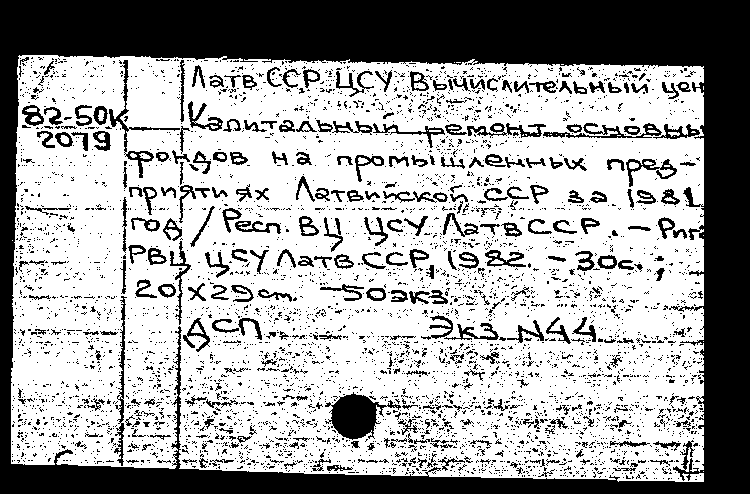 Латв ССР ЦСУ. Вычислительный цен
82-50К
2079
Капитальный ремонт основны
фондов на промышленных пред-
приятиях Латвийской ССР за 1981
год / Респ. ВЦ ЦСУ Латв ССР. - Рига
РВЦ ЦСУ Латв. ССР, 1982. - 30с.;
20 х 29 cm. - 50 экз.
ДСП. Экз N44